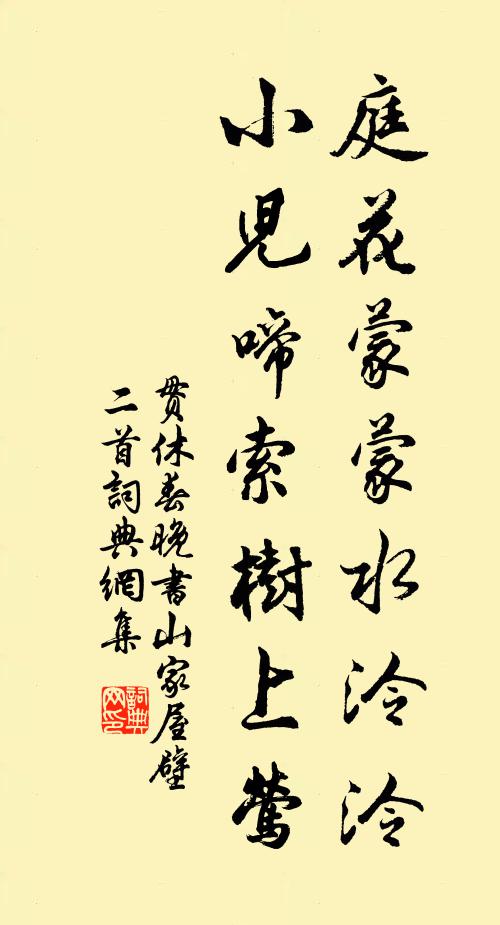 庭花蒙蒙水泠泠
小兒啼索樹上鶯
貫休春晚書山家屋壁
二首詞典網集
詞典
网印